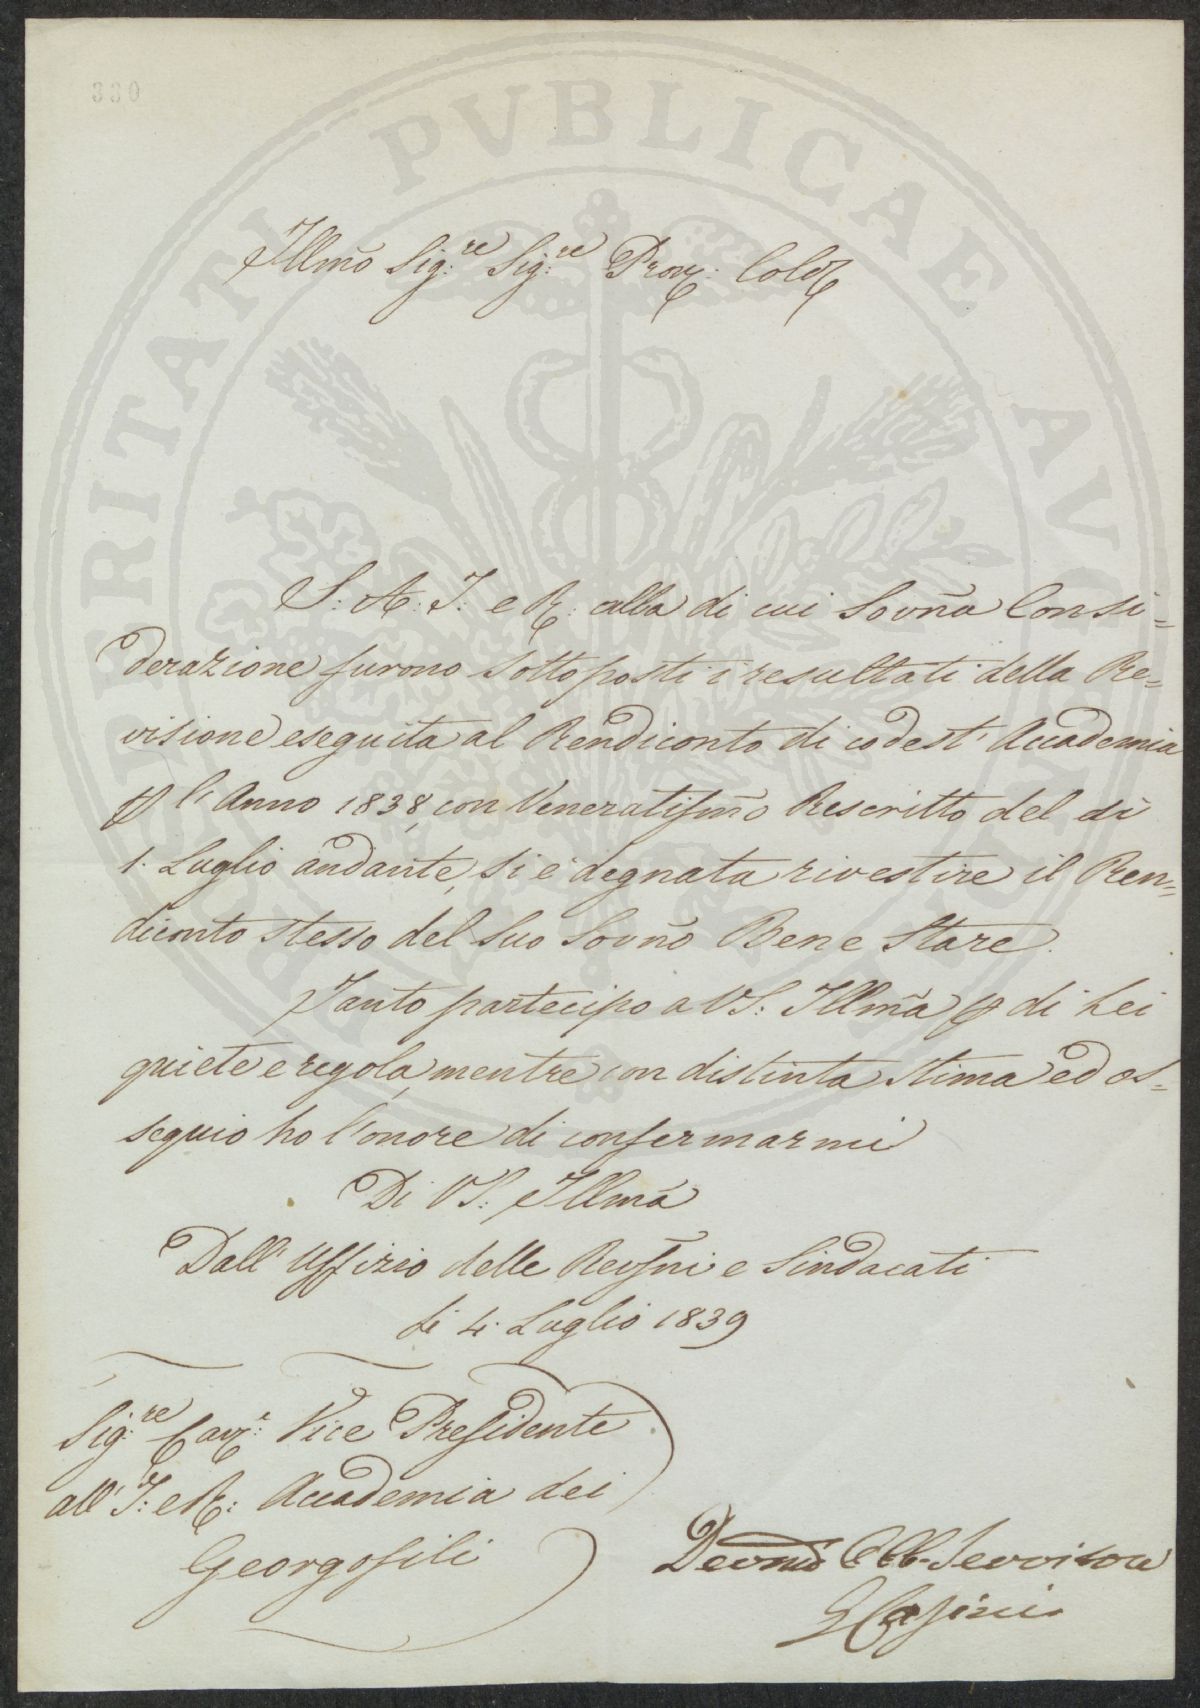 330
PROSPERITATI PVBLICAE AVGENDAE
Illmo Sig:re Sig:re Pron: Colmo
S: A: I: e R: alla di cui Sovna Consi=
derazione furono sottoposti i resultati della Re=
visione eseguita al Rendiconto di codest' Accademia
p l' Anno 1838, con Veneratissmo Rescritto del dì
1. Luglio andante, si è degnata rivestire il Ren=
diconto stesso del Suo Sovno Bene Stare.
Tanto partecipo a VS: Illma p di Lei
quiete e regola, mentre con distinta stima ed os=
sequio ho l'onore di confermarmi
Di VS: Illma
Dall' Uffizio delle Revisni e Sindacati
Li 4. Luglio 1839
Sig:re Cav:e Vice Presidente
all' I: e R: Accademia dei
Georgofili
Devmo Obb. Servitore